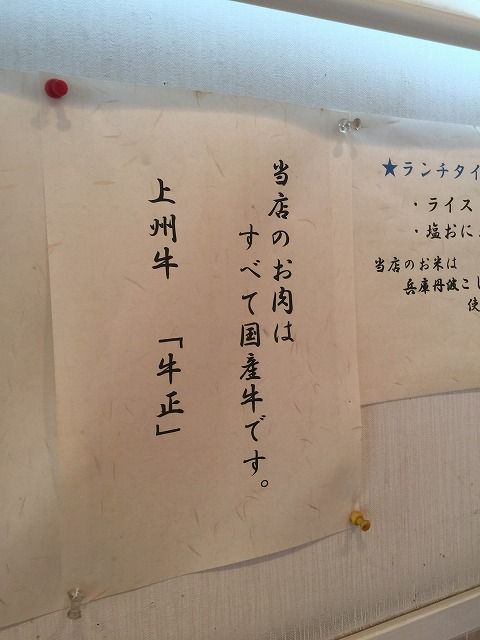 当店のお肉は
すべて国産牛です。
上州牛 「牛正」
★ランチタイ
・ライス
・塩おに
当店のお米は
兵庫丹波こし
使